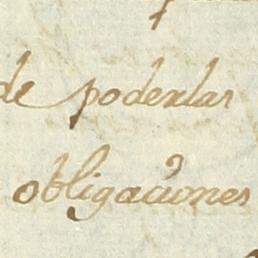 de poderlas
obligaciones